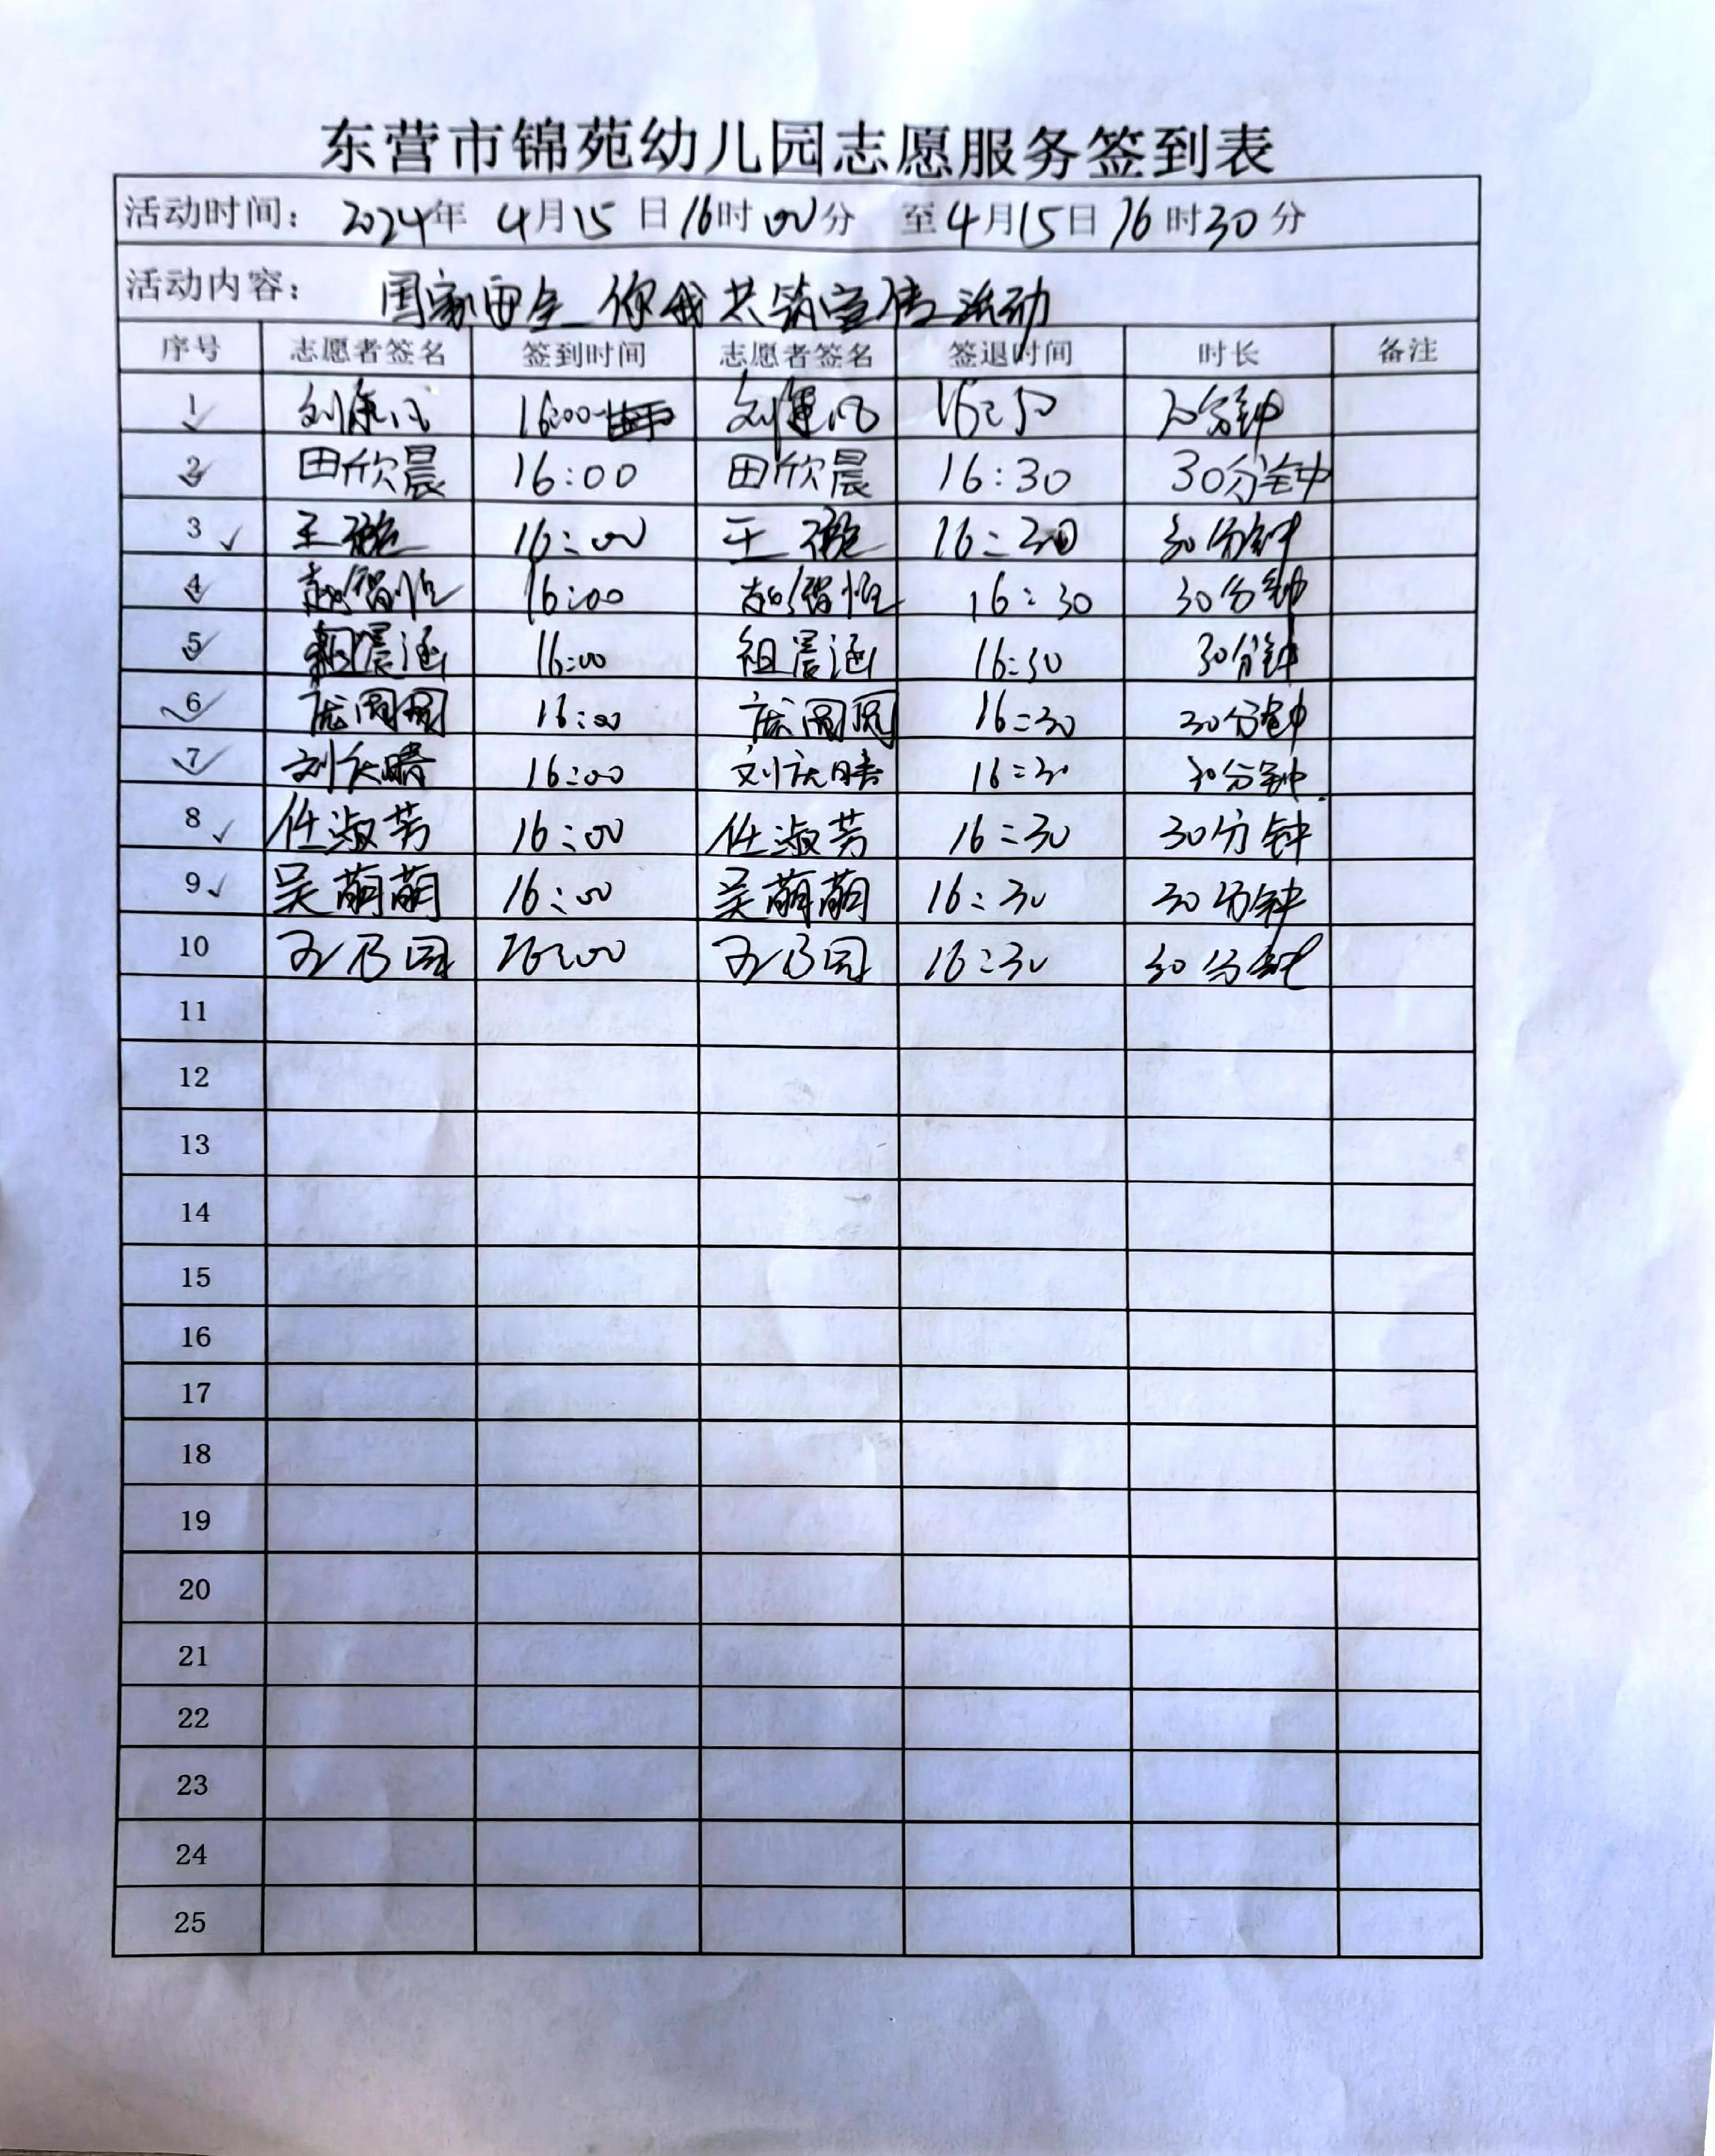 东营市锦苑幼儿园志愿服务签到表
活动时间: 2024年 4月15日16时00分 至4月15日16时30分
活动内容: 国家安全 你我共筑宣传活动
序号 志愿者签名 签到时间 志愿者签名 签退时间 时长 备注
1 16:00 16:30 30分钟
2 田欣晨 16:00 田欣晨 16:30 30分钟
3 王 16:00 王 16:30 30分钟
4 16:00 16:30 30分钟
5 晨涵 16:00 晨涵 16:30 30分钟
6 庞圆圆 16:00 庞圆圆 16:30 30分钟
7 刘庆晴 16:00 刘庆晴 16:30 30分钟
8 任淑芳 16:00 任淑芳 16:30 30分钟
9 吴萌萌 16:00 吴萌萌 16:30 30分钟
10 16:00 16:30 30分钟
11
12
13
14
15
16
17
18
19
20
21
22
23
24
25